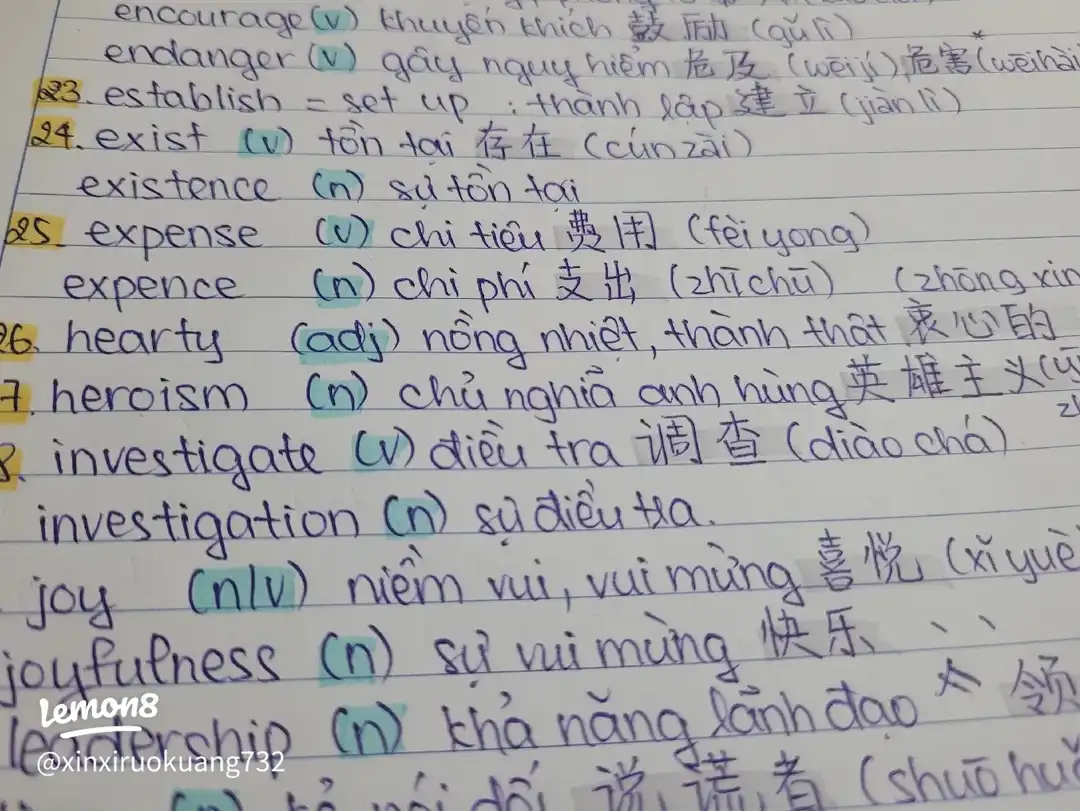 encourage (v) khuyến khích 鼓励 (gǔlì)
endanger (v) gây nguy hiểm 危及 (wēijí), 危害* (wēihài
23. establish = set up : thành lập 建立 (jiànlì)
24. exist (v) tồn tại 存在 (cúnzài)
existence (n) sự tồn tại
25. expense (v) chi tiêu 费用 (fèiyong)
expence (n) chi phí 支出 (zhīchū) (zhōngxin
26. hearty (adj) nồng nhiệt, thành thật 衷心的
7. heroism (n) chủ nghĩa anh hùng 英雄主义
8. investigate (v) điều tra 调查 (diàochá)
investigation (n) sự điều tra.
joy (n/v) niềm vui, vui mừng 喜悦 (xǐyuè
joyfulness (n) sự vui mừng 快乐
leadership (n) khả năng lãnh đạo 领
说谎者 (shuō hu
Lemon8
@xinxiruokuang732